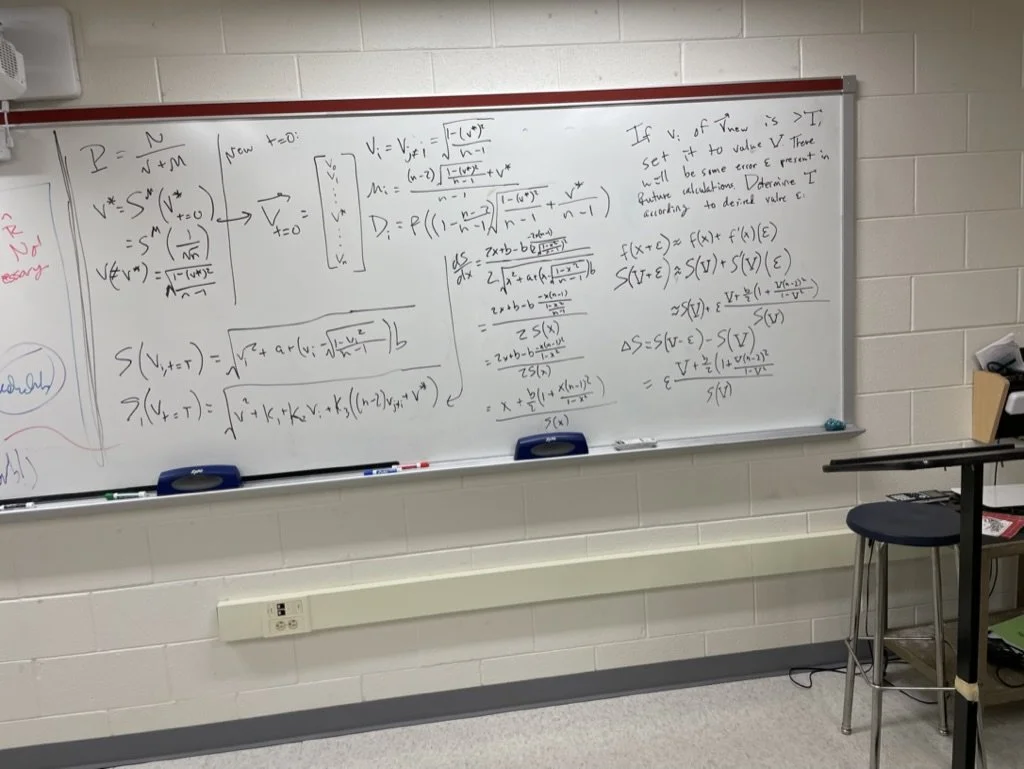 R
Not
essary
P = N/(√+M)
V* = S^M (V*_{t=0})
= S^M (1/√n)
V(≠V*) = √((1-(V*)²)/(n-1))
New t=0:
V⃗_{t=0} = [V₀ V₁ ⋮ V* ⋮ Vₙ]
V_i = V_{j≠i} = √((1-(V*)²)/(n-1))
μ_i = ((n-2)√((1-(V*)²)/(n-1)) + V*)/(n-1)
D_i = P((1-(n-2)/(n-1))√((1-(V*)²)/(n-1)) + V*/(n-1))
S(V_{i,t=T}) = √(V_i² + a + (V_i - √((1-V_i²)/(n-1)))b)
S_i(V_{t=T}) = √(V² + K₁ + K₂V_i + K₃((n-2)V_{j≠i} + V*))
= (2x+b-b(-x(n-1)/((1-x²)/(n-1))))/(2S(x))
= (2x+b-b(-x(n-1)²/(1-x²)))/(2S(x))
= (x + b/2(1 + x(n-1)²/(1-x²)))/S(x)
If V_i of V⃗_new is >T,
set it to value V. There
will be some error ε present in
future calculations. Determine T
according to desired value ε.
f(x+ε) ≈ f(x) + f'(x)(ε)
S(V+ε) ≈ S(V) + S'(V)(ε)
≈ S(V) + ε (V + b/2(1 + V(n-1)²/(1-V²)))/S(V)
ΔS = S(V-ε) - S(V)
= ε (V + b/2(1 + V(n-1)²/(1-V²)))/S(V)